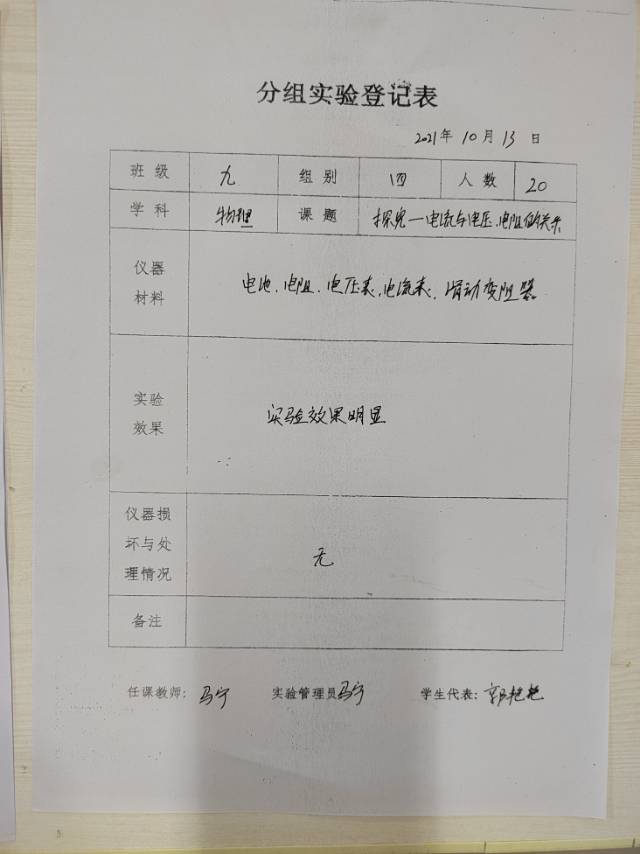 分组实验登记表
2021年 10月 13 日
班 级 九 组 别 四 人 数 20
学 科 物理 课 题 探究—电流与电压、电阻的关系
仪器
材料
电池、电阻、电压表、电流表、滑动变阻器
实验
效果
实验效果明显
仪器损
坏与处
理情况
无
备注
任课教师：马宁 实验管理员马宁 学生代表：郭艳艳